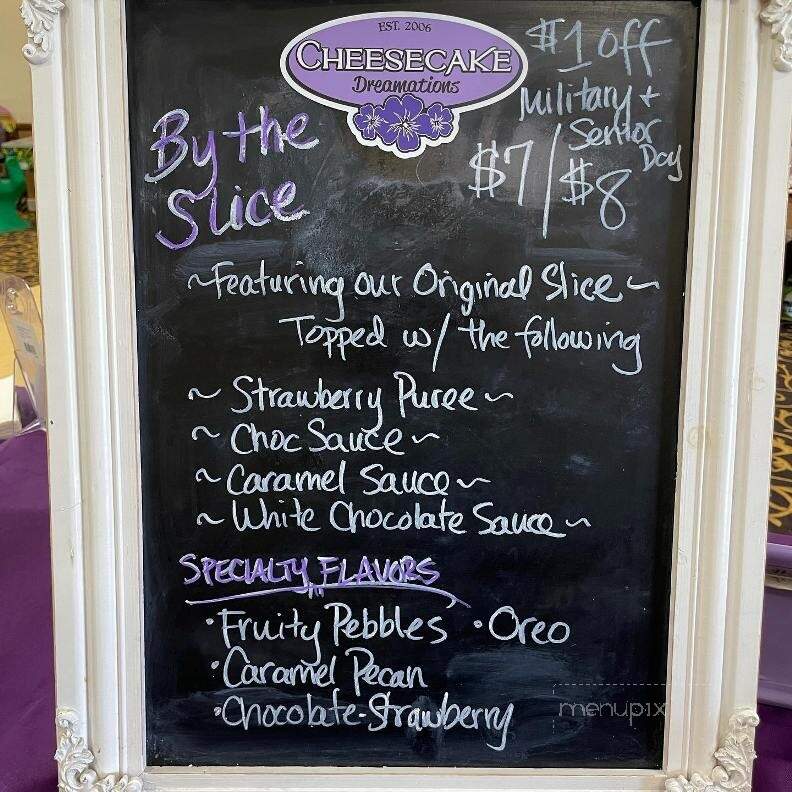 EST. 2006
CHEESECAKE
Dreamations
$1 off
Military +
Senior
Day
By the
Slice
$7/$8
~Featuring our Original Slice~
Topped w/ the following
~ Strawberry Puree ~
~ Choc Sauce ~
~ Caramel Sauce ~
~ White Chocolate Sauce ~
SPECIALTY FLAVORS
•Fruity Pebbles •Oreo
•Caramel Pecan
•Chocolate-Strawberry
menupix